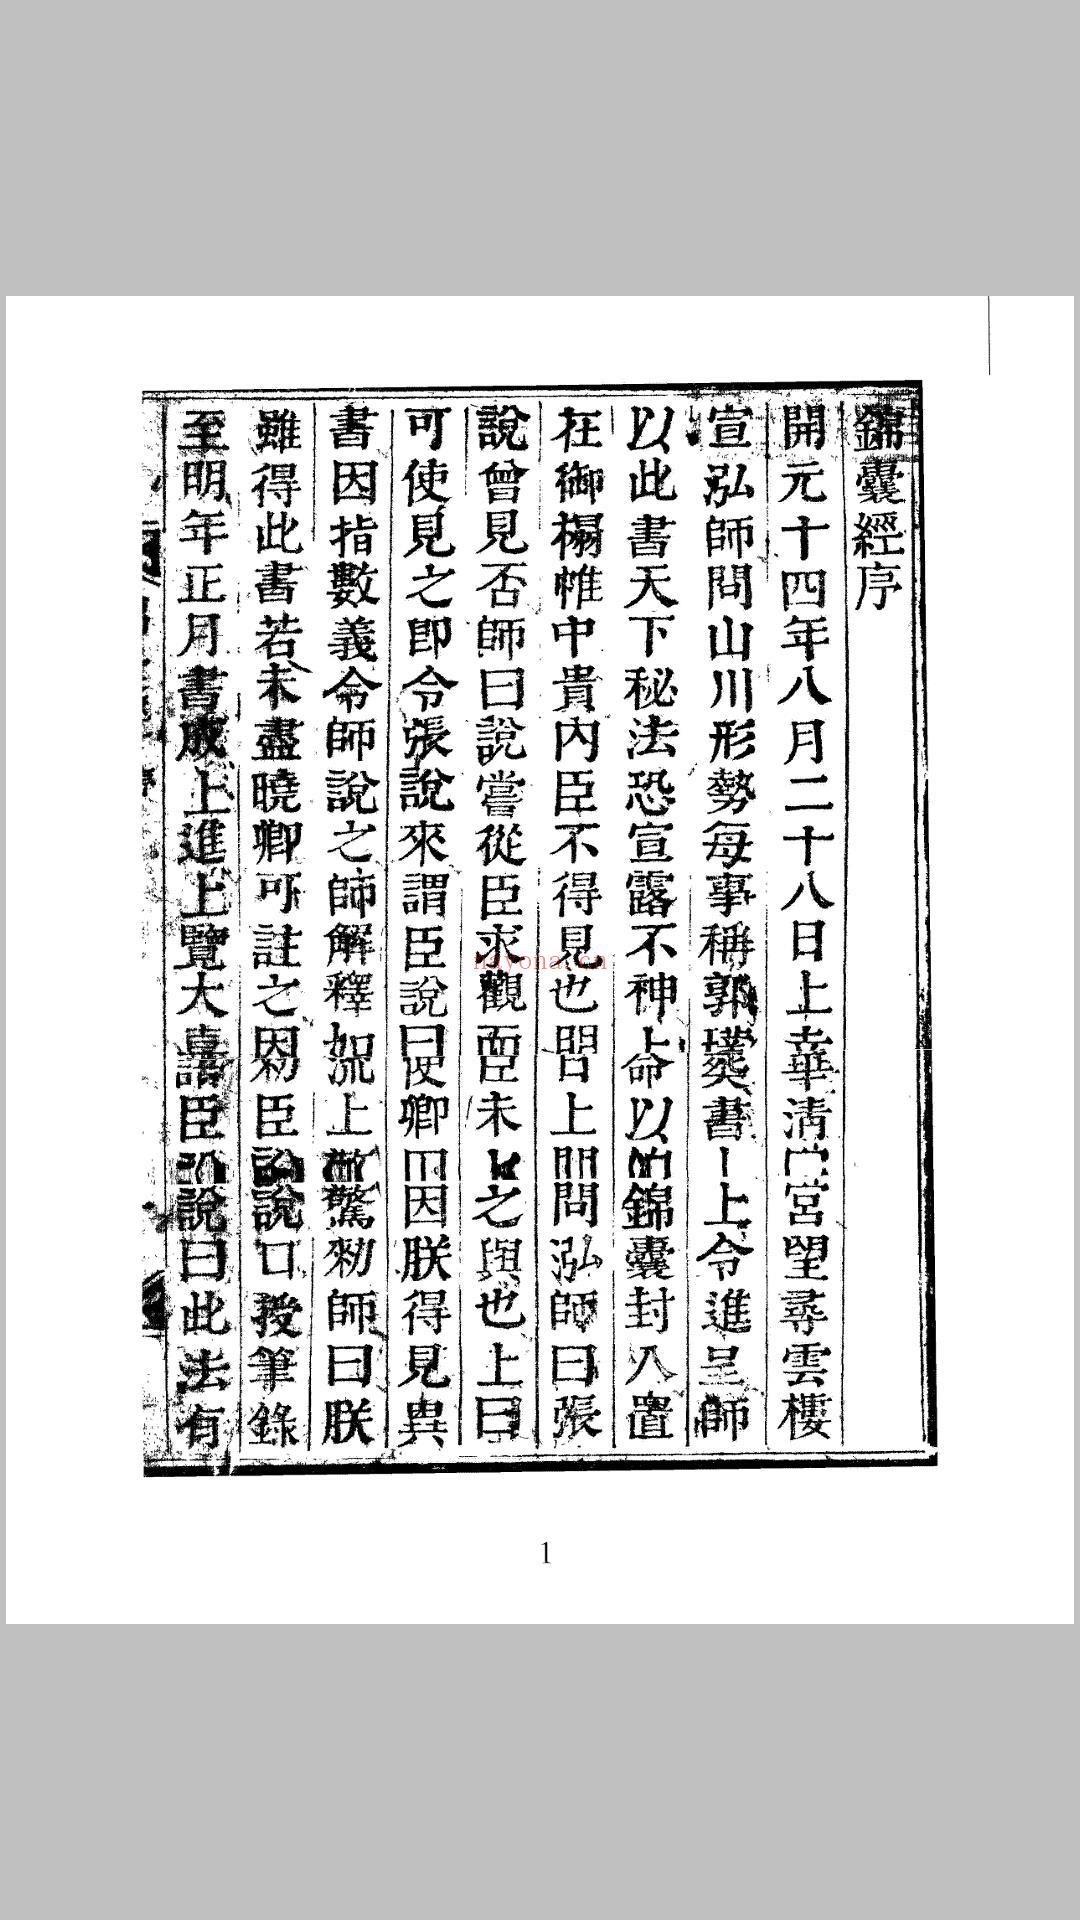 錦囊經序
開元十四年八月二十八日上幸華清宮望尋雲樓
宣泓師問山川形勢每事稱郭璞葬書上令進呈師
以此書天下秘法恐宣露不神上命以錦囊封八置
在御榻帷中貴內臣不得見也 上問泓師曰張
說曾見否師曰說嘗從臣求觀而臣未之與也上曰
可使見之即令張說來謂臣說曰使卿因朕得見異
書因指數義令師說之師解釋如流上驚勑師曰朕
雖得此書若未盡曉卿可註之因勑臣說口授筆錄
至明年正月書成上進上覽大喜語臣說曰此法有
nayona.cn
1